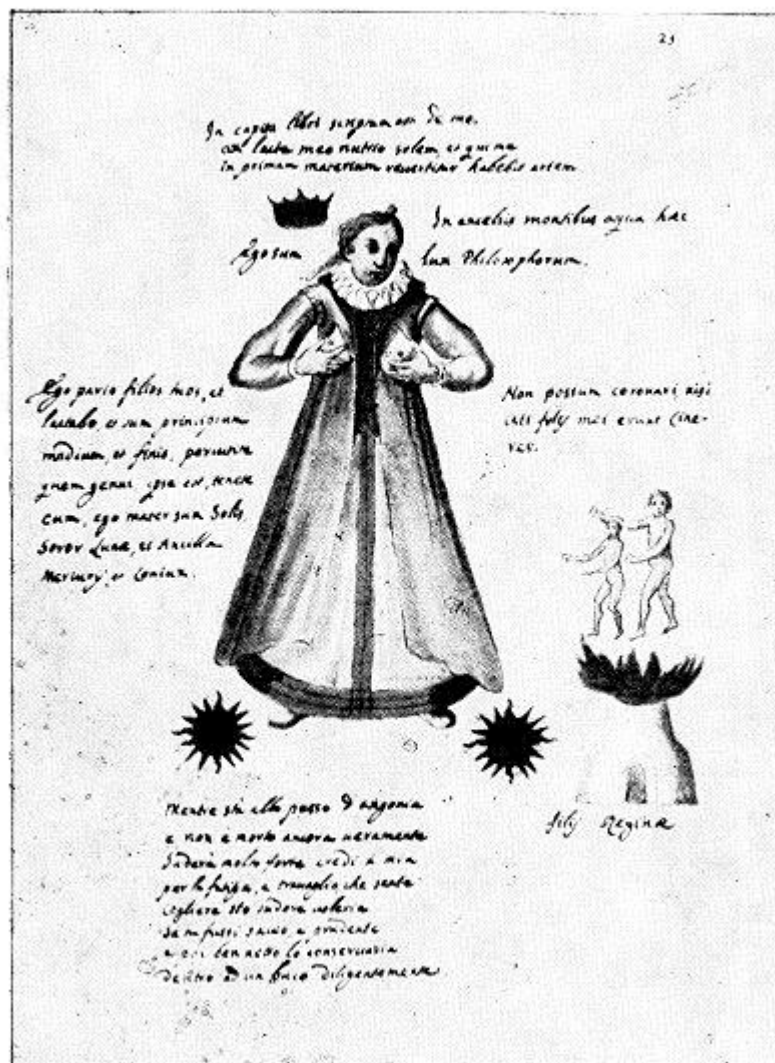 25
In capite libri scriptum est de me,
lacte meo nutrio solem, et qui me
in primam materiam revertitur habebit artem
In excelsis montibus aqua hæc
Ego sum lux Philosophorum.
Ego pario filios meos, et
lactabo, et sum principium
medium, et finis,
quem genui ipse est,
eum, ego mater sum Solis,
Soror Lunæ, et Ancilla
Mercurij, et Coniux.
Non possum coronari, nisi
isti filij mei erunt Cine-
res.
filij Reginæ
Mentre sta allo passo d'angonia
e non è morto ancora veramente
Suderà molto forte credi a mia
per la fatiga, e travaglio che sente
cogliere sto sudore voleria
se tu fussi savio, e prudente
e poi ben netto lo conservaria
dentro ad un diligentemente